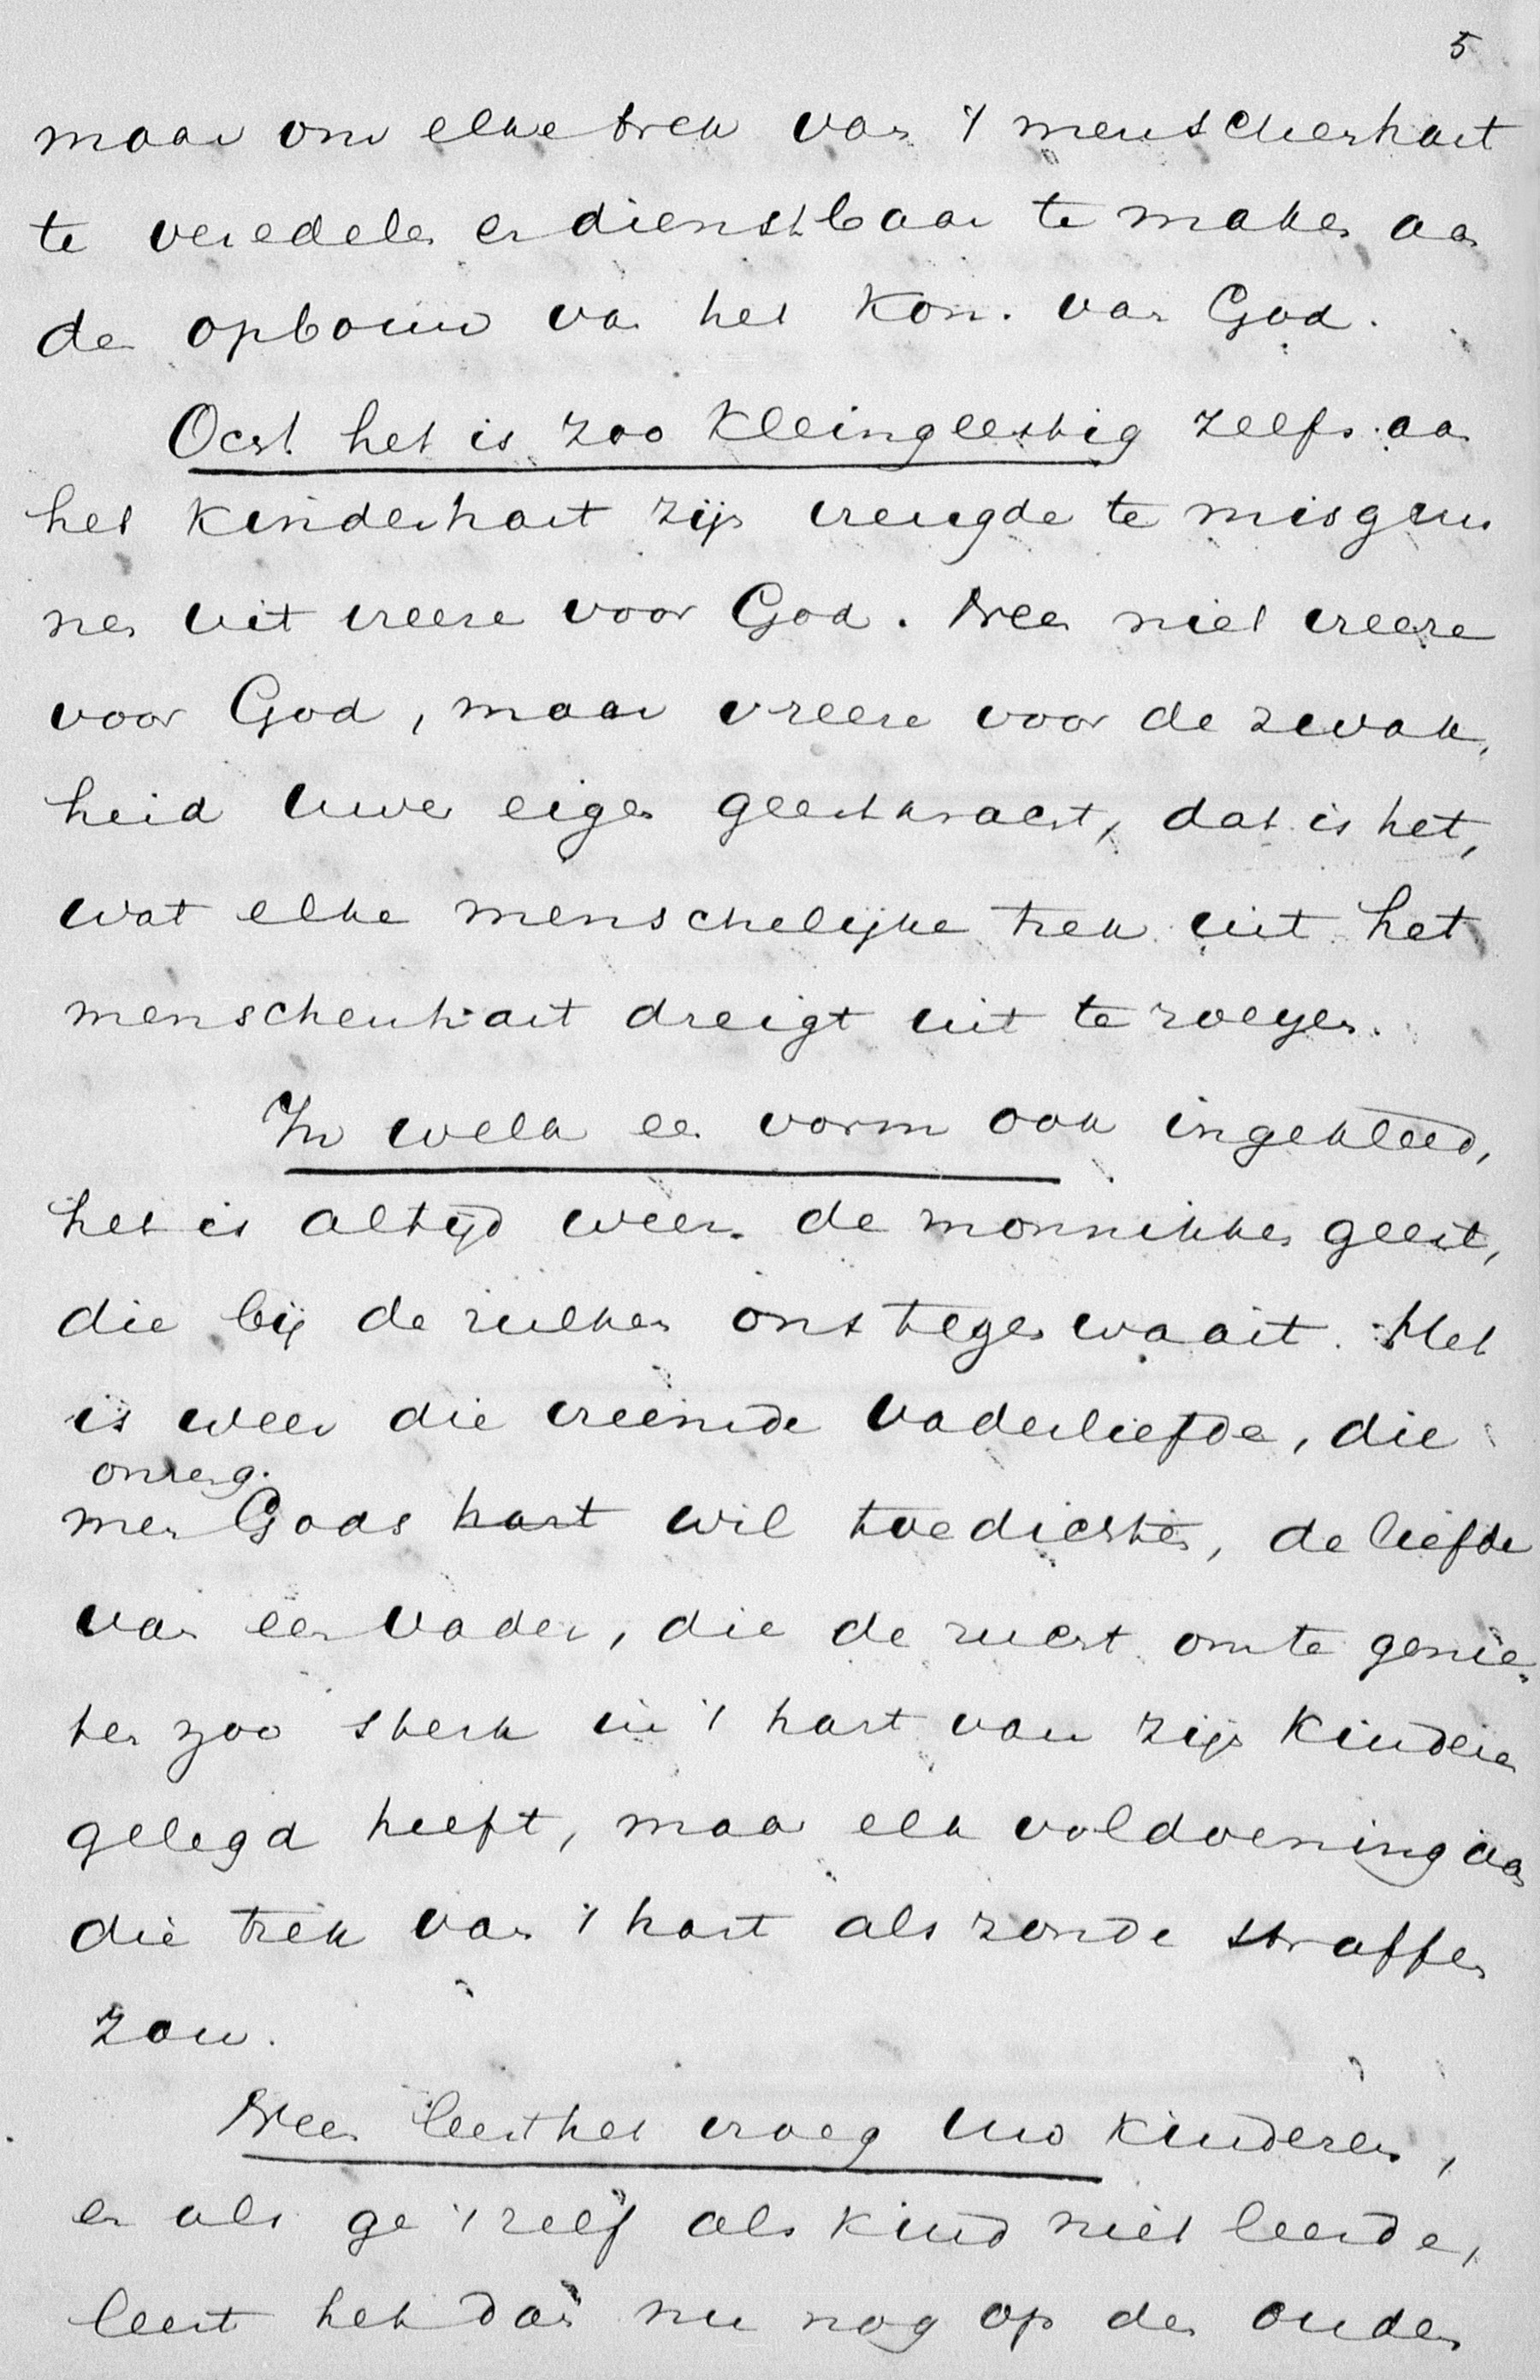 5
maar om elke trek van 't menschenhart
te veredelen en dienstbaar te maken aan
den opbouw van het Kon. van God.
Och het is zoo kleingeestig zelfs aan
het kinderhart zijn vreugde te misgun
nen uit vreeze voor God. Neen niet vreeze
voor God, maar vreeze voor de zwak,
heid uwer eigen geestkracht, dat is het,
wat elke menschelijke trek uit het
menschenhart dreigt uit te roeyen.
In welk een vorm ook ingekleed,
het is altijd weer de monnikken geest,
die bij de zulken ons tegen waait. Het
is weer die vreemde vaderliefde, die
onreg.
men Gods hart wil toedichten, de liefde
van een Vader, die de zucht om te genie-
ten zoo sterk in 't hart van zijn kinderen
gelegd heeft, maar elk voldoening aan
die trek van 't hart als zonde straffen
zou.
Neen leert het vroeg uw kinderen,
en als ge 't zelf als kind niet leerde,
leert het dan nu nog op den ouden